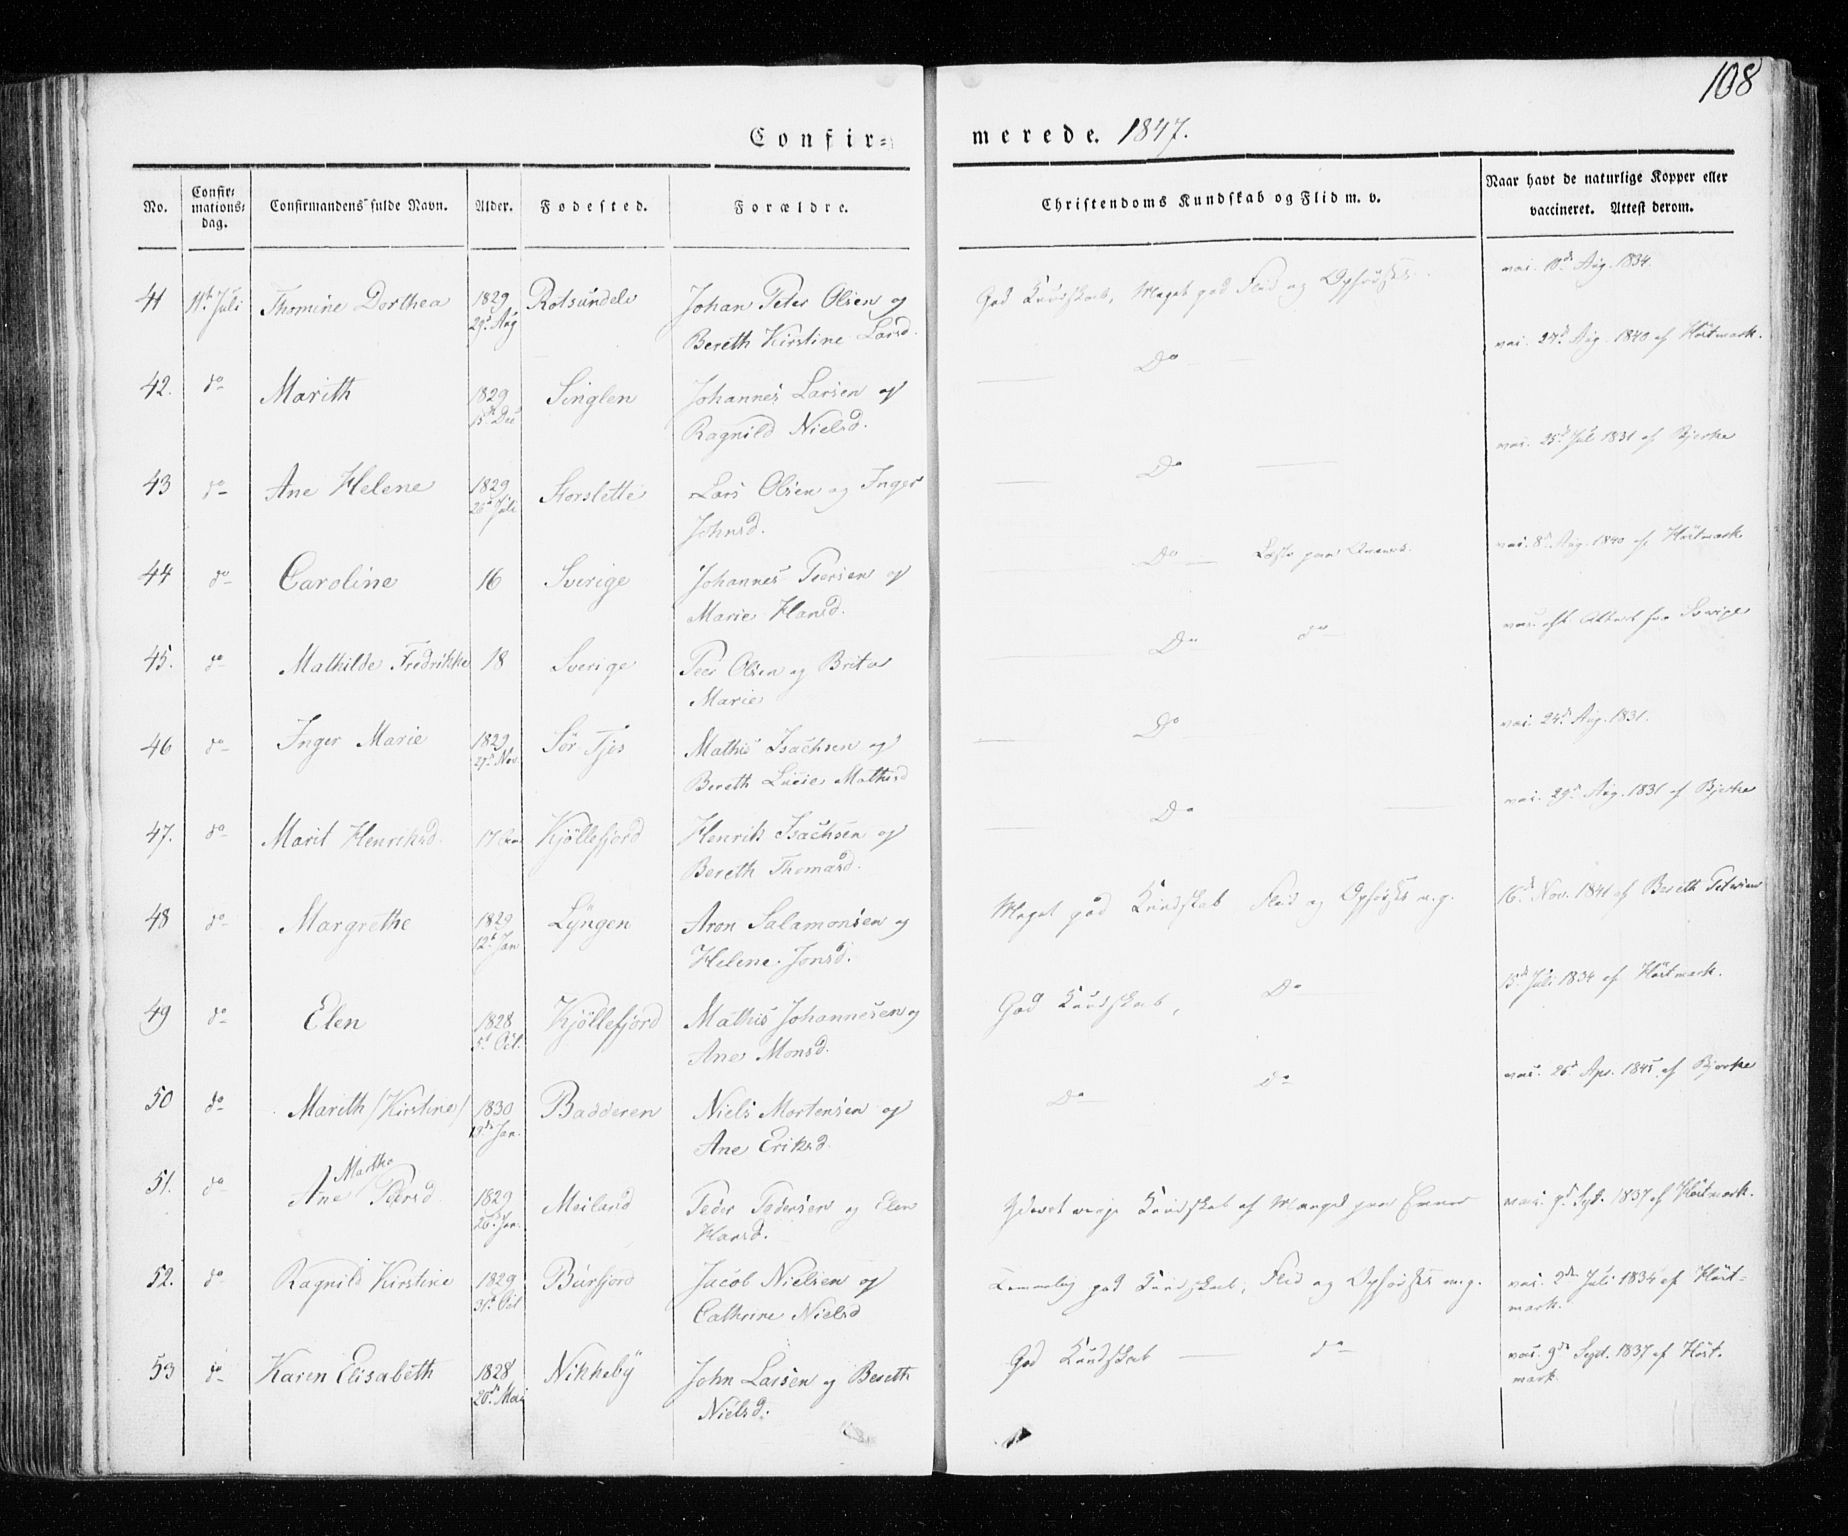 108
Confir=
merede. 1847.
No.
Confir=
mations=
dag.
Confirmandens fulde Navn.
Alder.
Fødested.
Forældre.
Christendoms Kundskab og Flid m. v.
Naar havt de naturlige Kopper eller
vaccineret. Attest derom.
41 11te Juli Thomine Dorthea 1829 Rotsundelv Johan Peter Olsen og God Kundskab, Meget god Flid og Opførsel vac. Aug. 1834.
29d Aug Bereth Kirstine Larsd.
42. do Marith 1829 Singlen Johannes Larsen og Do vac. 27d Aug. 1840 af Hörtmark.
15de Dec Ragnild Nielsd.
43 do Ane Helene 1829 Storslette Lars Olsen og Inger Do vac. 25d Jul 1831 af Bjerke
26d Juli Johnsd.
44 do Caroline 16 Sverige Johannes Peersen og Do vac. 8d Aug. 1840 af Hörtmark
Marie Hansd.
45. do Mathilde Fredrikke 18 Sverige Peer Olsen og Brita Do do vac. Attest fra Sverige
Marie
46 do Inger Marie 1829 Sör Tjos Mathis Isachsen og Do vac. 24d Aug. 1831.
27d Nov. Bereth Lucie Mathisd
47. do Marit Henriksd. 17 Kjöllefjord Henrik Isachsen og Do vac. 29d Aug. 1831 af Bjerke
Bereth Thomasd.
48 do Margrethe 1829 Lyngen Aron Salamonsen og Meget god Kundskab Flid og Opførsel m.g. 16d Nov. 1841 af Bereth
12t Jan Helene Jonsd.
49 do Elen 1828 Kjöllefjord Mathis Johannesen og God Kundskab, Do 15d Juli 1834 af Hörtmark.
5t Oct. Ane Monsd.
50 do Marith /Kirstine/ 1830 Badderen Niels Mortensen og Do do vac. 26d Apr. 1845 af Bjerke
Jan. Ane Eriksd.
Marthe
51. do Ane Peersd. 1829 Meiland Peder Pedersen og Elen Kundskab af Mangel paa Evner vac. 9d Sept. 1837 af Hörtmark.
26d Jan. Hansd.
52. do Ragnild Kirstine 1829 Burfjord Jacob Nielsen og Temmelig god Kundskab, Flid og Opførsel m.g. vac. 2den Juli 1834 af Hört=
31t Oct Cathrine Nielsd mark.
53 do Karen Elisabeth 1828 Nikkeby John Larsen og Bereth God Kundskab do vac. 9de Sept. 1837 af Hört.
26d Mai Nielsd. mark.